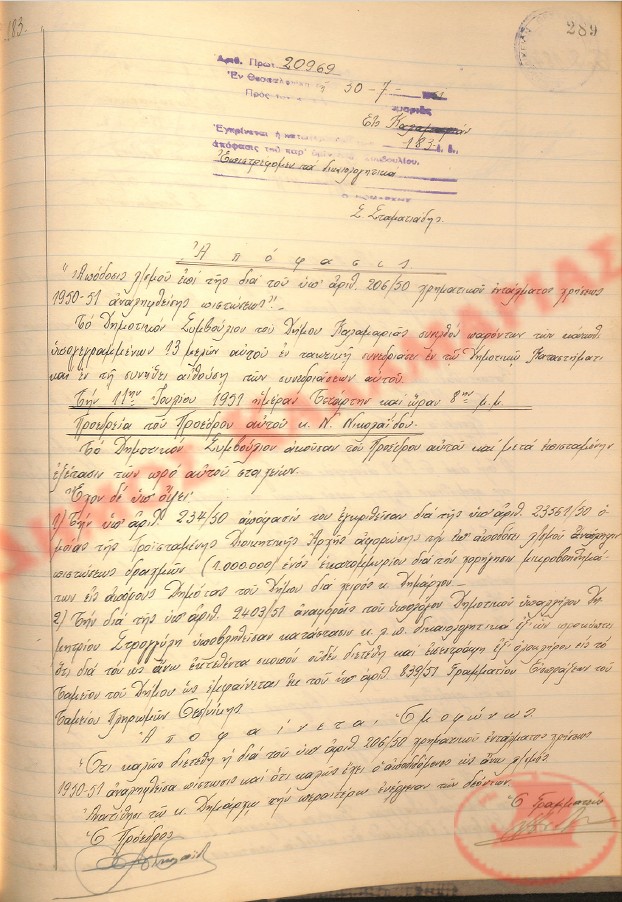 183.
289
Ἀριθ. Πρωτ. 20969
Ἐν Θεσσαλονίκῃ τῇ 30-7-
Πρὸς
Εἰς Καλαμαριάν
Ἐγκρίνεται ἡ 183
ἀπόφασις τοῦ
Ἐπιστρέφομεν τὰ δικαιολογητικά
Σ. Σταματιάδης.
Ἀπόφασις.
"Ἀπόδοσις λ)σμοῦ ἐπὶ τῆς διὰ τοῦ ὑπ' ἀριθ. 206/50 χρηματικοῦ ἐντάλματος χρήσεως
1950-51 ἀναληφθείσης πιστώσεως".
Τὸ Δημοτικὸν Συμβούλιον τοῦ Δήμου Καλαμαριᾶς συνελθὸν παρόντων τῶν κάτωθι
ὑπογεγραμμένων 13 μελῶν αὐτοῦ ἐν τακτικῇ συνεδριάσει ἐν τῷ Δημοτικῷ Καταστήματι
καὶ ἐν τῇ συνήθει αἰθούσῃ τῶν συνεδριάσεων αὐτοῦ.
Τὴν 11ην Ἰουλίου 1951 ἡμέραν Τετάρτην καὶ ὥραν 8ην μ.μ.
Προεδρεία τοῦ Προέδρου αὐτοῦ κ. Ν. Νικολαΐδου.
Τὸ Δημοτικὸν Συμβούλιον ἀκοῦσαν τοῦ Προέδρου αὐτοῦ καὶ μετὰ ἐπισταμένην
ἐξέτασιν τῶν πρὸ αὐτοῦ στοιχείων.
Ἔχον δὲ ὑπ' ὄψει:
1) Τὴν ὑπ' ἀριθ. 234/50 ἀπόφασίν του ἐγκριθεῖσαν διὰ τῆς ὑπ' ἀριθ. 23561/50 ὁ-
μοίας τῆς Προϊσταμένης Διοικητικῆς Ἀρχῆς ἀφορῶσαν τὴν ἐπὶ ἀποδόσει λ)σμοῦ ἀνάληψιν
πιστώσεως δραχμῶν (1.000.000) ἑνὸς ἑκατομμυρίου διὰ τὴν χορήγησιν μικροβοηθημά-
των εἰς ἀπόρους Δημότας τοῦ Δήμου διὰ χειρὸς κ. Δημάρχου.
2) Τὴν διὰ τῆς ὑπ' ἀριθ. 2403/51 ἀναφορᾶς τοῦ ὑπολόγου Δημοτικοῦ ὑπαλλήλου Δη-
μητρίου Στρογγύλη ὑποβληθεῖσαν κατάστασιν κ.λ.π. δικαιολογητικὰ ἐξ ὧν προκύπτει
ὅτι διὰ τὸν ὡς ἄνω ἐκτεθέντα σκοπὸν οὐδὲν διετέθη καὶ ἐπεστράφη ἐξ ὁλοκλήρου εἰς τὸ
Ταμεῖον τοῦ Δήμου ὡς ἐμφαίνεται ἐκ τοῦ ὑπ' ἀριθ. 839/51 Γραμματίου Εἰσπράξεων τοῦ
Ταμείου Πληρωμῶν Θεσ/νίκης
Ἀποφαίνεται Ὁμοφώνως.
Ὅτι καλῶς διετέθη ἡ διὰ τοῦ ὑπ' ἀριθ. 206/50 χρηματικοῦ ἐντάλματος χρήσεως
1950-51 ἀναληφθεῖσα πίστωσις καὶ ὅτι καλῶς ἔχει ὁ ἀποδιδόμενος ὡς ἄνω λ)σμός.
Ἀνατίθησι τῷ κ. Δημάρχῳ τὴν περαιτέρω ἐνέργειαν τῶν δεόντων.
Ὁ Πρόεδρος
Ὁ Γραμματεύς
ΔΗΜΟΣ ΚΑΛΑΜΑΡΙΑΣ